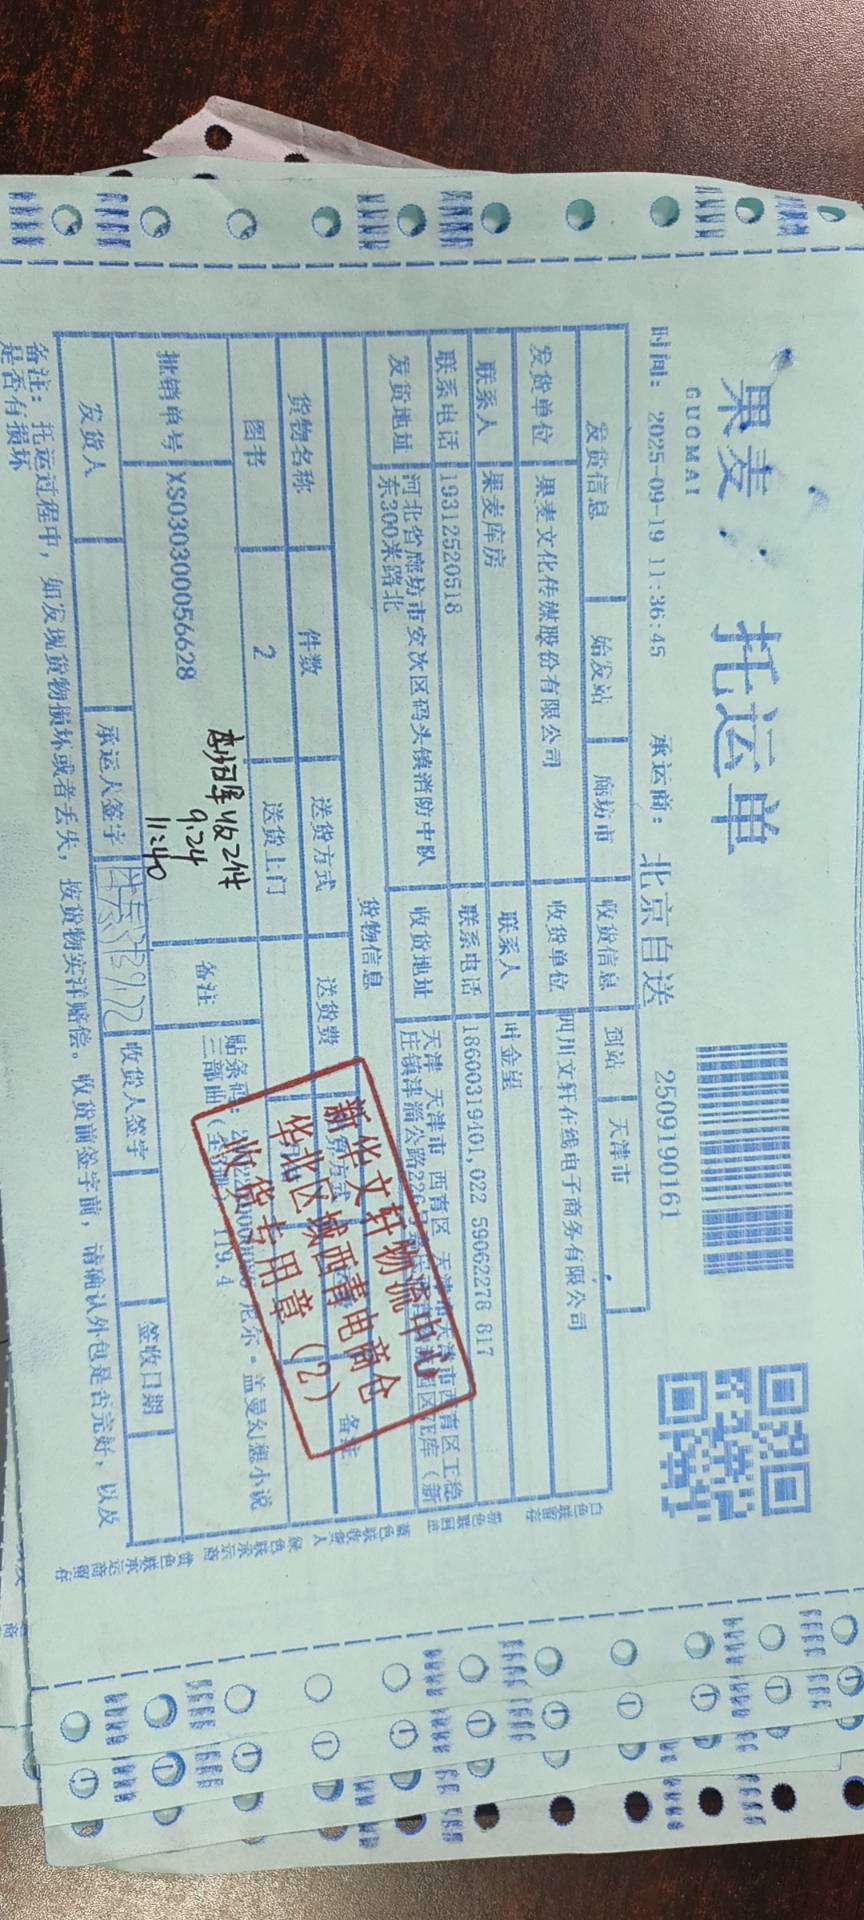 果麦 托运单
GUOMAI
2509190161
时间: 2025-09-19 11:36:45 承运商: 北京自送
发货信息 始发站 廊坊市 收货信息 到站 天津市
发货单位 果麦文化传媒股份有限公司 收货单位 四川文轩在线电子商务有限公司
联系人 果麦库房 联系人 叶金望
联系电话 19312520518 联系电话 18600319401,022 59062278 817
发货地址 河北省廊坊市安次区码头镇消防中队
东300米路北
收货地址 天津 天津市 西青区 天津市天津市西青区王稳
庄镇津淄公路226号
货物信息
货物名称 件数 送货方式 送货费 备注
图书 2 送货上门
批销单号 XS030300056628
本归库收2件
9.24
11:40
备注 贴条码: 尼尔·盖曼幻想小说
三部曲 119.4
发货人 承运人签字 收货人签字 签收日期
备注: 托运过程中, 如发现货物损坏或者丢失, 按货物实洋赔偿。收货前签字前, 请确认外包是否完好, 以及
是否有损坏
新华文轩物流中心
华北区域西青电商仓
收货专用章 (2)
白色联留存